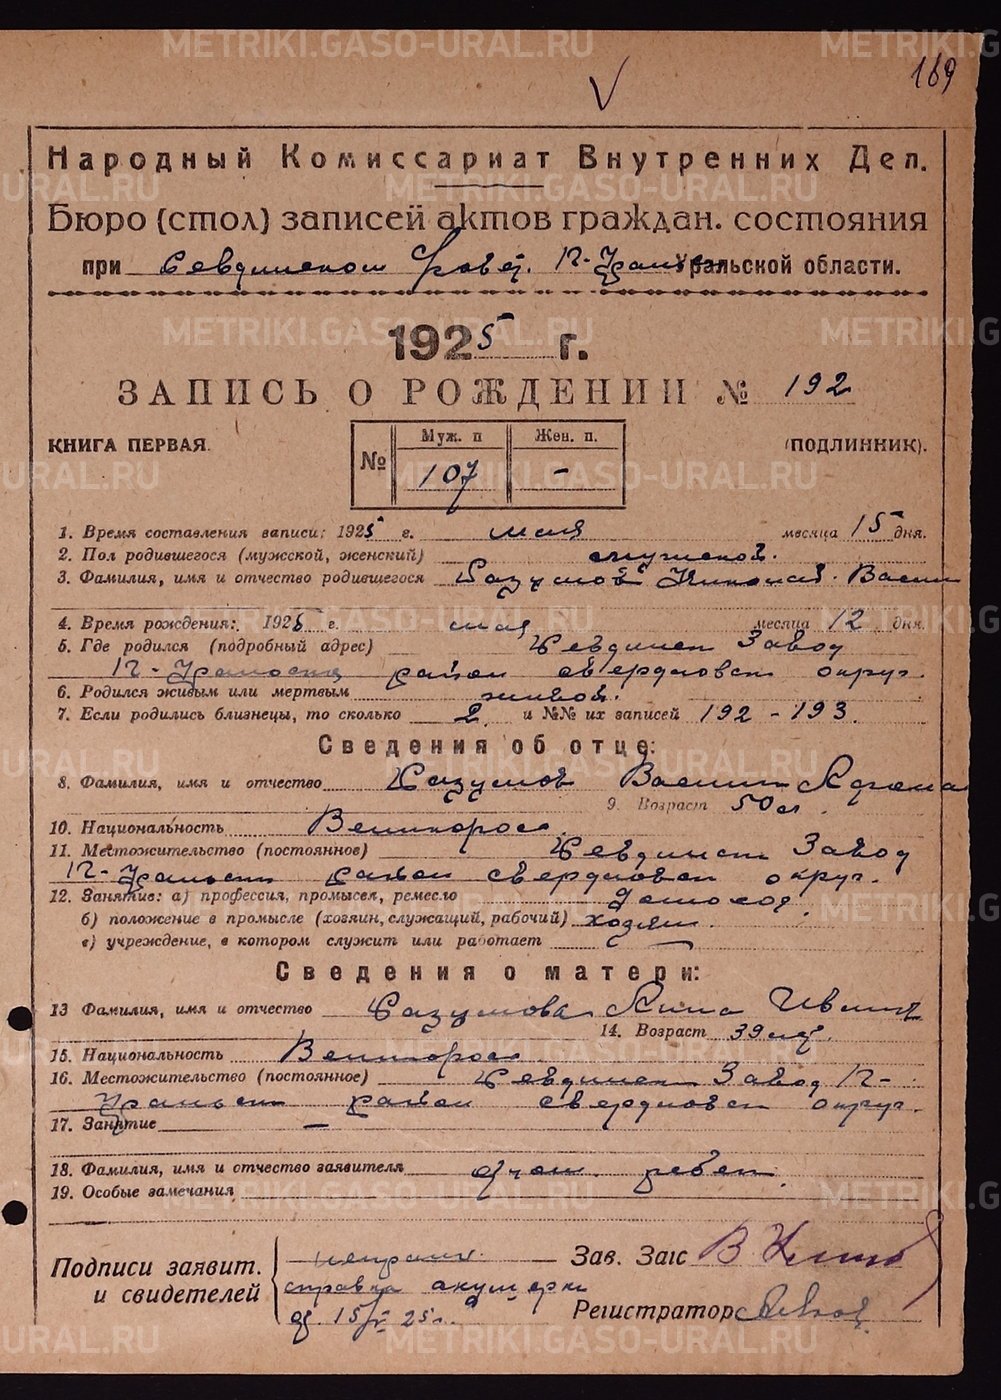 169
Народный Комиссариат Внутренних Дел.
Бюро (стол) записей актов граждан. состояния
при Ревдинском П-Уральск Уральской области.
1925 г.
ЗАПИСЬ О РОЖДЕНИИ № 192
КНИГА ПЕРВАЯ. № Муж. п 107 Жен. п. - (ПОДЛИННИК).
1. Время составления записи: 1925 г. мая месяца 15 дня.
2. Пол родившегося (мужской, женский) мужской.
3. Фамилия, имя и отчество родившегося Разумов Николай Васил
4. Время рождения: 1925 г. мая месяца 12 дня.
5. Где родился (подробный адрес) Ревдинск Завод
П-Уральск район свердловск округ.
6. Родился живым или мертвым живой.
7. Если родились близнецы, то сколько 2 и №№ их записей 192-193.
Сведения об отце:
8. Фамилия, имя и отчество Разумов Васили
9. Возраст 50 л.
10. Национальность Великоросс.
11. Местожительство (постоянное) Ревдинск Завод
П-Уральск район свердловск округ.
12. Занятие: а) профессия, промысел, ремесло домохоз.
б) положение в промысле (хозяин, служащий, рабочий) хозяин.
в) учреждение, в котором служит или работает —
Сведения о матери:
13 Фамилия, имя и отчество Разумова Анна
14. Возраст 39 лет.
15. Национальность Великоросс
16. Местожительство (постоянное) Ревдинск Завод П-
Уральск район свердловск округ.
17. Занятие —
18. Фамилия, имя и отчество заявителя отец ребен.
19. Особые замечания
Подписи заявит. и свидетелей неграмот.
справка акушерки
от 15/V 25 г.
Зав. Загс
Регистратор
METRIKI.GASO-URAL.RU